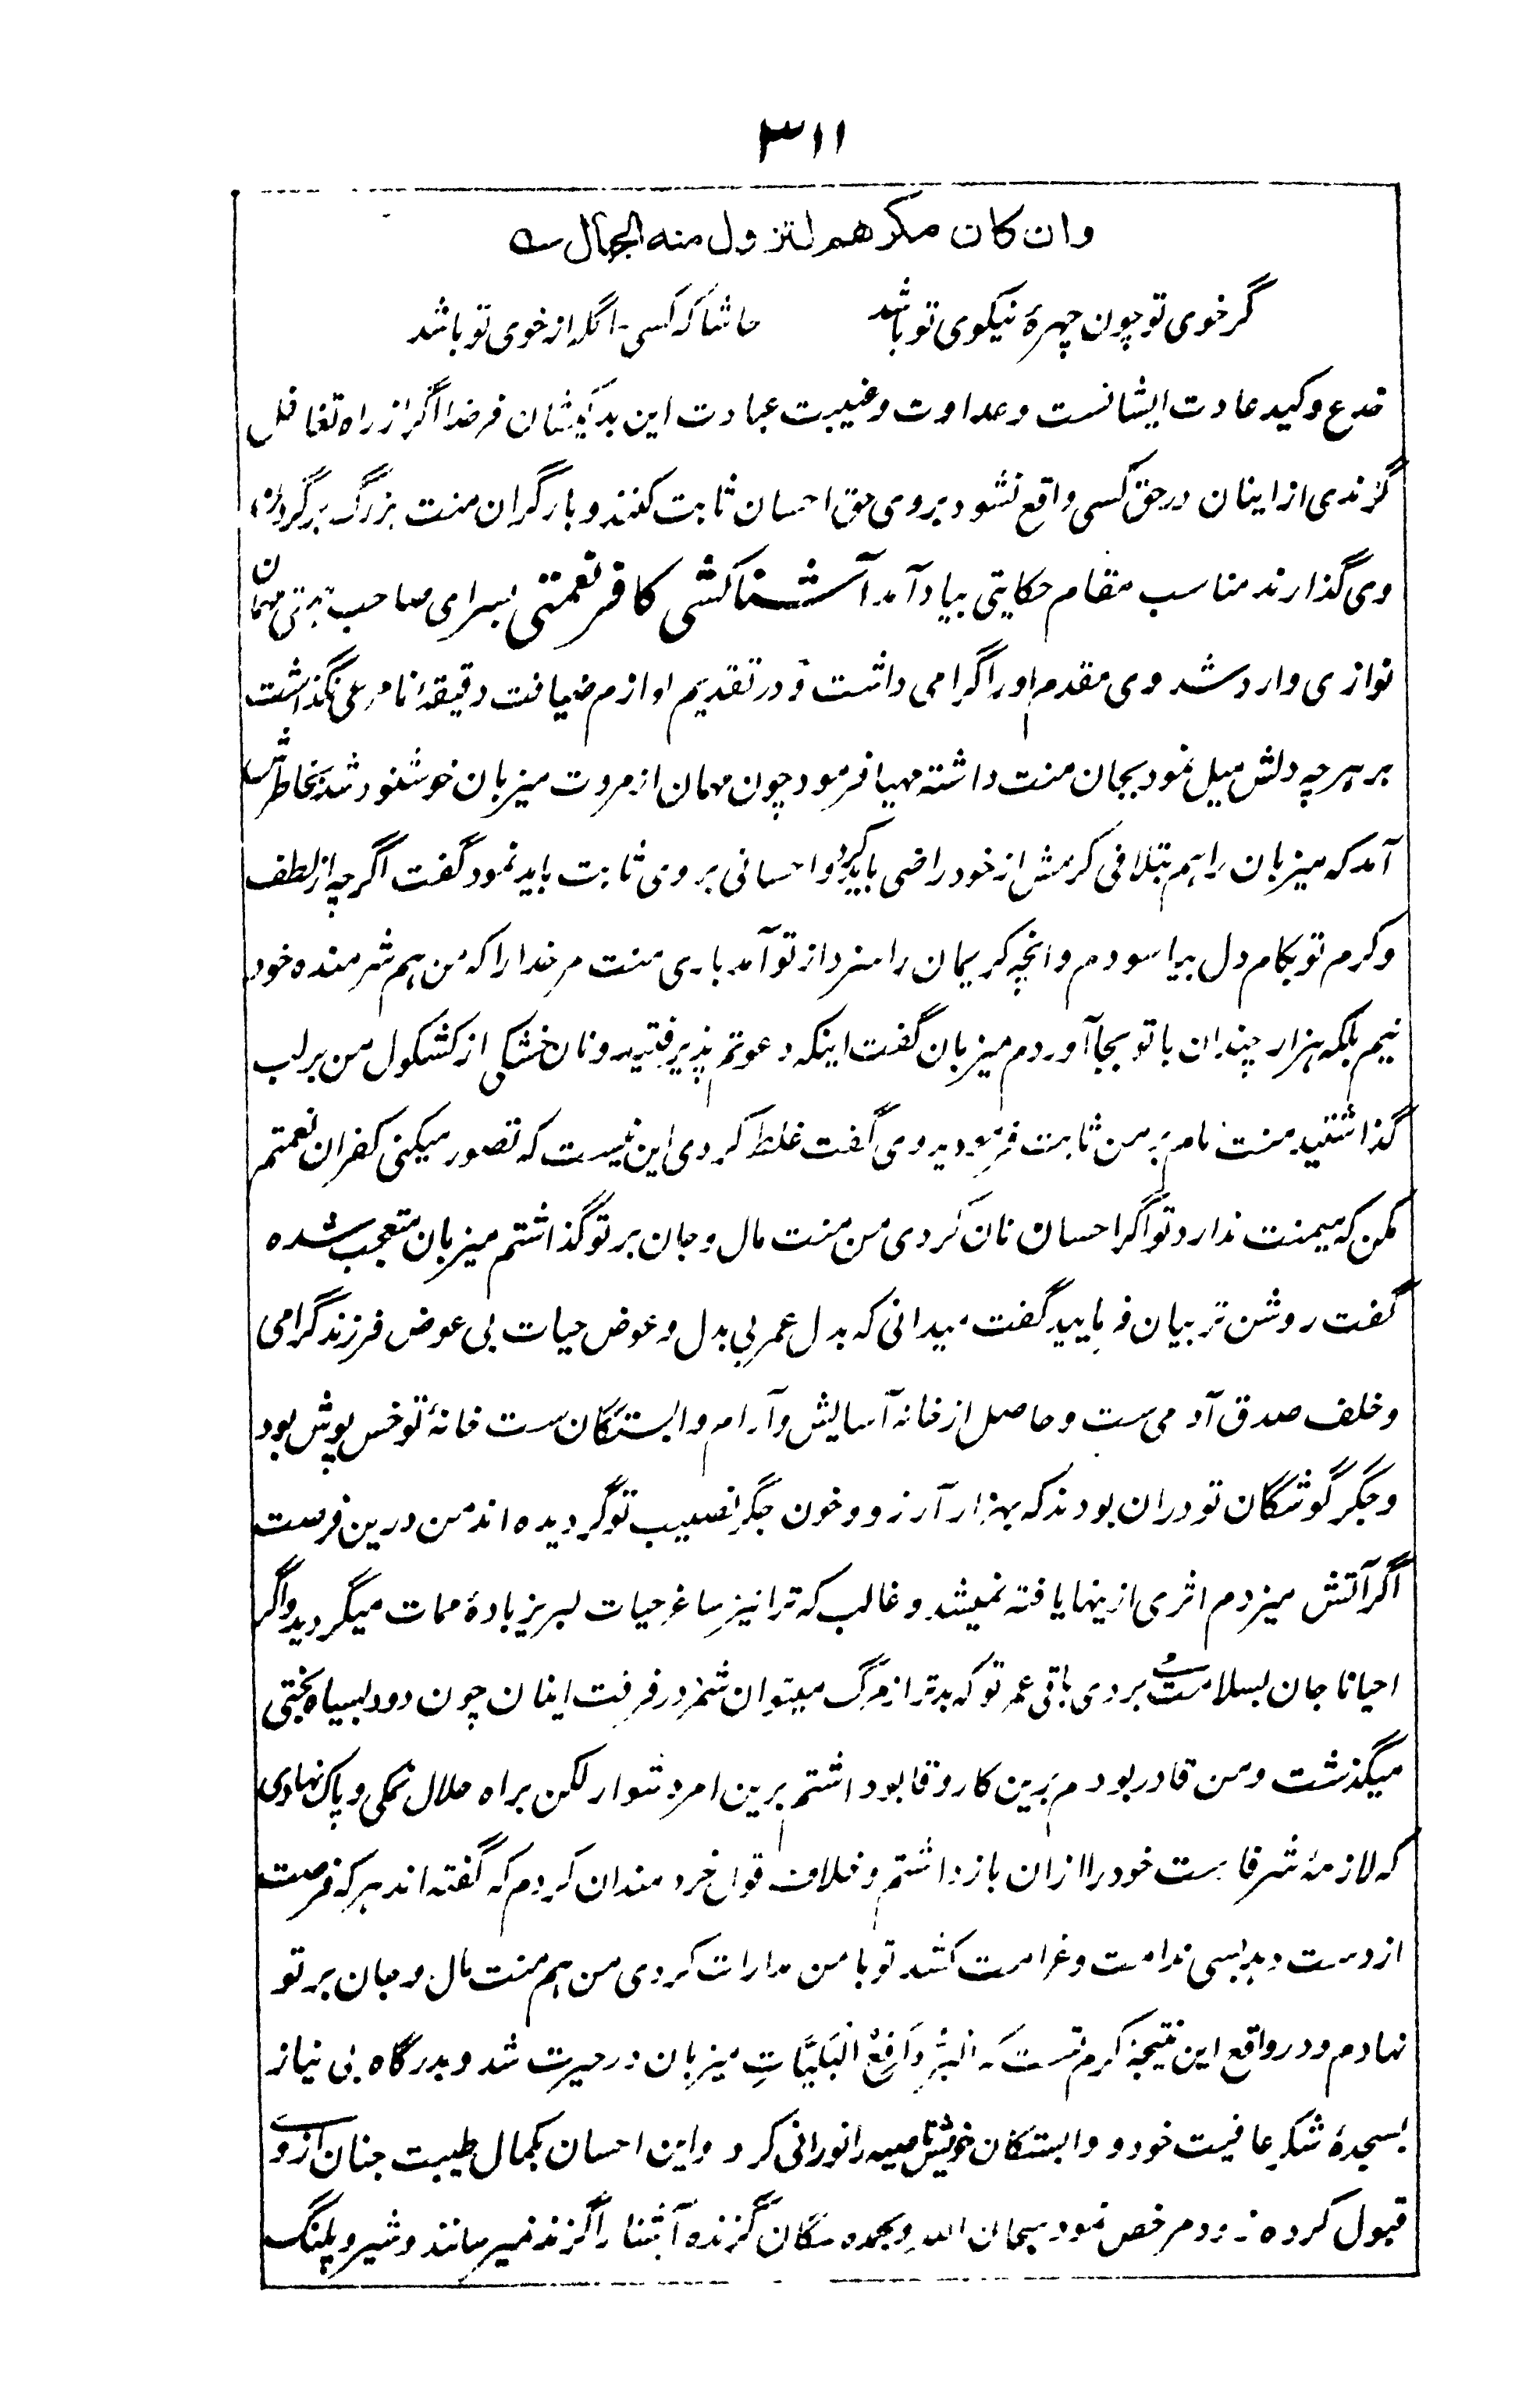 ۳۱۱
وان کان مکرهم لتزول منه الجبال ے
گر خوی تو چون چهرهٔ نیکوی تو باشد حاشا که کسی را گله از خوی تو باشد
خدع وکید عادت ایشانست وعداوت وغیبت عبادت این بدکیشان فرضا اگر از راه تغافل
گزندی از اینان در حق کسی واقع نشود بروی حق احسان ثابت کنند وبار گران منت بزرگ بر گردن
وی گذارند مناسب مقام حکایتی بیاد آمد آشناکشی کافر نعمتی بسرای صاحب مهمان
نوازی وارد شد وی مقدم او را گرامی داشت و در تقدیم لوازم ضیافت دقیقهٔ نامرعی نگذاشت
بر هرچه دلش میل نمود بجان منت داشته مهیا فرمود چون مهمان از مروت میزبان خوشنود شد بخاطرش
آمد که میزبان را هم بتلافی کرمش از خود راضی باید کرد واحسانی بروی ثابت باید نمود گفت اگرچه از لطف
وکرم تو بکام دل بیاسودم وانچه کریمان را سزد از تو آمد باری منت مر خدا را که من هم شرمنده خود
نیم بلکه هزار چندان با تو بجا آوردم میزبان گفت اینکه دعوتم پذیرفتید ونان خشکی از کشکول من برلب
گذاشتید منت نام بر من ثابت فرمودید وی گفت غلط کردی این نیست که تصور میکنی کفران نعمتم
مکن که میمنت ندارد تو اگر احسان نان کردی من منت مال وجان بر تو گذاشتم میزبان متعجب شده
گفت روشن تر بیان فرمایید گفت میدانی که بدل عمر بی بدل وعوض حیات بی عوض فرزند گرامی
وخلف صدق آدمی ست وحاصل از خانه آسایش وآرام وابستگان ست خانهٔ تو خس پوش بود
وجگر گوشگان تو دران بودند که بهزار آرزو وخون جگر نصیب تو گردیده اند من درین فرصت
اگر آتش میزدم اثری از ینها یافته نمیشد وغالب که ترا نیز ساغر حیات لبریز بادهٔ ممات میگردید واگر
احیانا جان بسلامت بردی باقی عمر تو که بدتر از مرگ میتوان شمرد در فرقت اینان چون دود بسیاه بختی
میگذشت ومن قادر بودم برین کار وقابو داشتم برین امر دشوار لکن براه حلال نمکی وپاک نهادی
که لازمهٔ شرفاست خود را ازان بازداشتم وخلاف قول خردمندان کردم که گفته اند هر که فرصت
از دست دهد بسی ندامت وغرامت کشد تو با من مدارات کردی من هم منت مال وجان بر تو
نهادم ودر واقع این نتیجهٔ کرم تست که البِرُّ دَافِعُ الْبَلِیَّاتِ میزبان در حیرت شد وبدرگاه بی نیاز
بسجدهٔ شکر عافیت خود و وابستگان خویش ناصیه را نورانی کرد واین احسان بکمال طیبت جنان از وے
قبول کرده زود مرخص نمود سبحان الله وبحمده سگان گزنده آشنا را گزند نمیرسانند وشیر وپلنگ